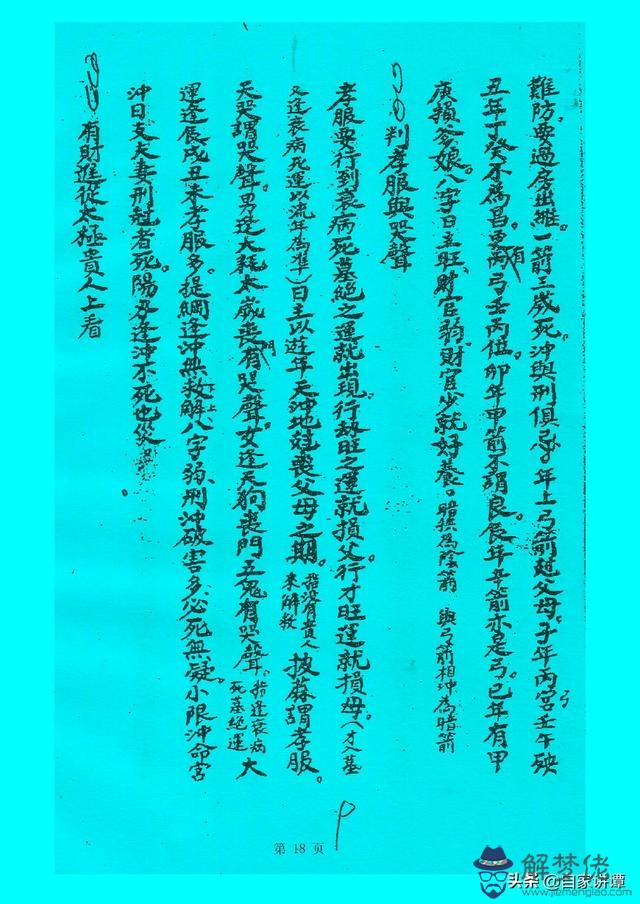 難防。要過房出姓。一箭三歲死。沖與刑俱忌。年上弓箭尅父母。子年丙宫弓壬午殃
丑年丁癸不為昌。寅有弓壬丙位。卯年甲箭不謂良。辰年辛箭亦是弓。巳年有甲
庚損爹娘。八字日主旺、財官弱。財官少就好養。暗損為陰箭 與弓箭相沖為暗箭
判孝服與哭聲
孝服要行到衰病死墓絶之運就出現。行劫旺之運就損父。行才旺運就損母。(才入墓
又逢衰病死運以流年為準)日主以遊年天沖地尅喪父母之期。指没有貴人來解救 披蔴謂孝服。
天哭謂哭聲。男逢大耗太歲喪門有哭聲。女逢天狗喪門五鬼有哭聲。指逢衰病死墓絶運 大
運逢辰戌丑未孝服多。提綱逢沖無救解上下八字弱、刑沖破害多、必死無疑。小限沖命宮
沖日支夫妻刑尅者死。陽刃逢沖不死也災
有財進從太極貴人上看
第18页
解梦佬
www.jiemenglao.com
头条@自家讲谭